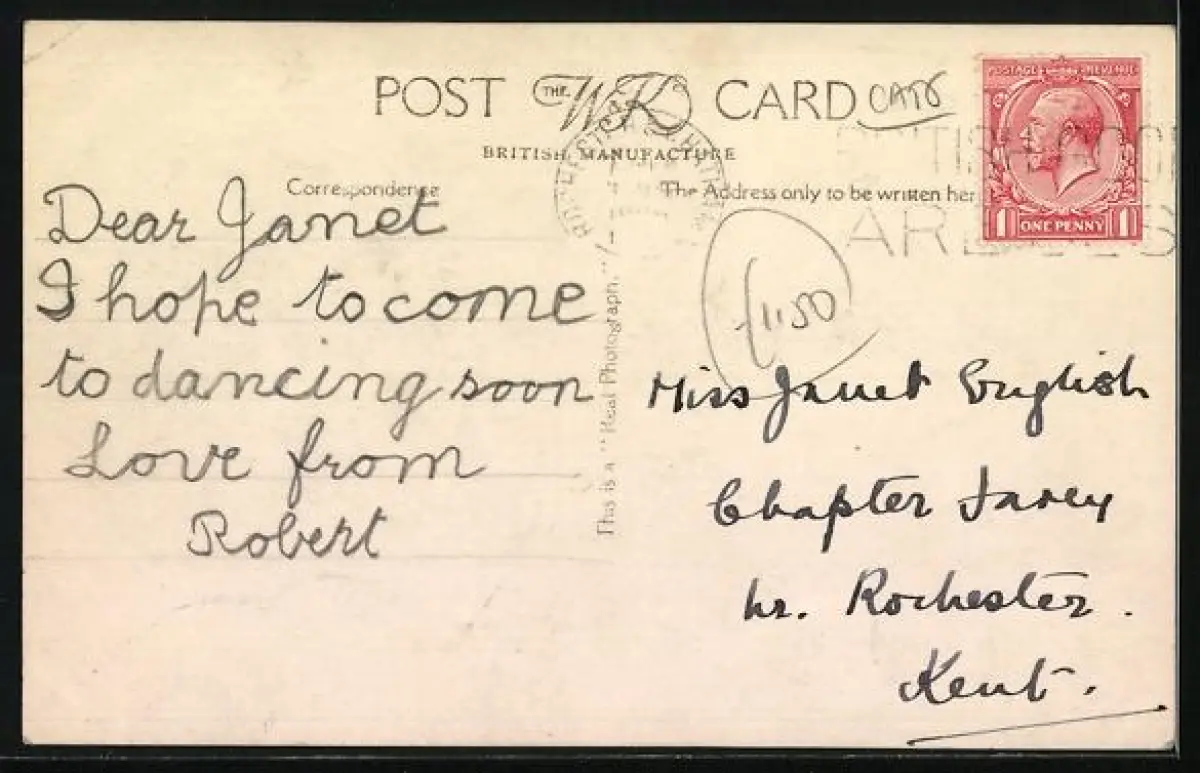 POST THE WK CARD CATS
BRITISH MANUFACTURE
Correspondence
The Address only to be written her
POSTAGE REVENUE
1 ONE PENNY 1
Dear Janet
I hope to come
to dancing soon
Love from
Robert
This is a "Real Photograph."
£1.50
Miss Janet English
Chapter Farey
nr. Rochester.
Kent.